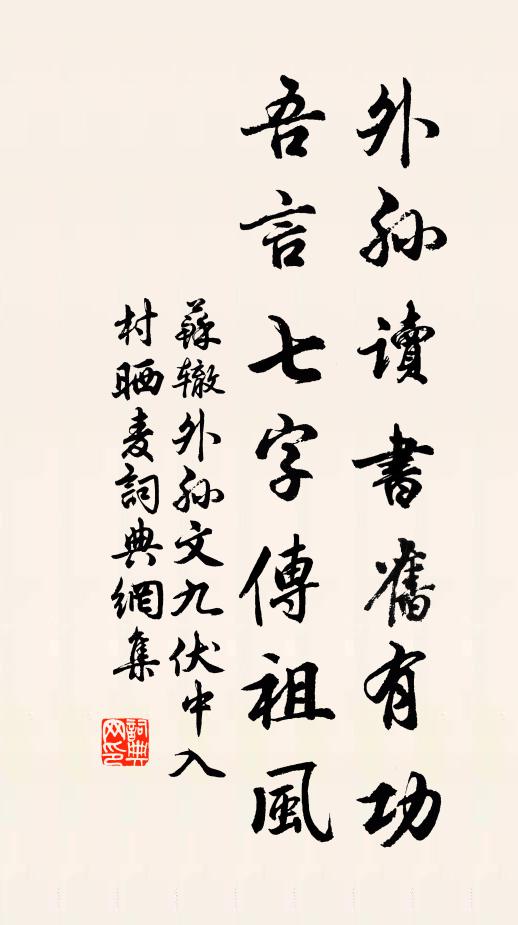 外孙讀書舊有功
吾言七字傳祖風
蘇轍外孙文九伏中入
村晒麦詞典網集
詞典
网印